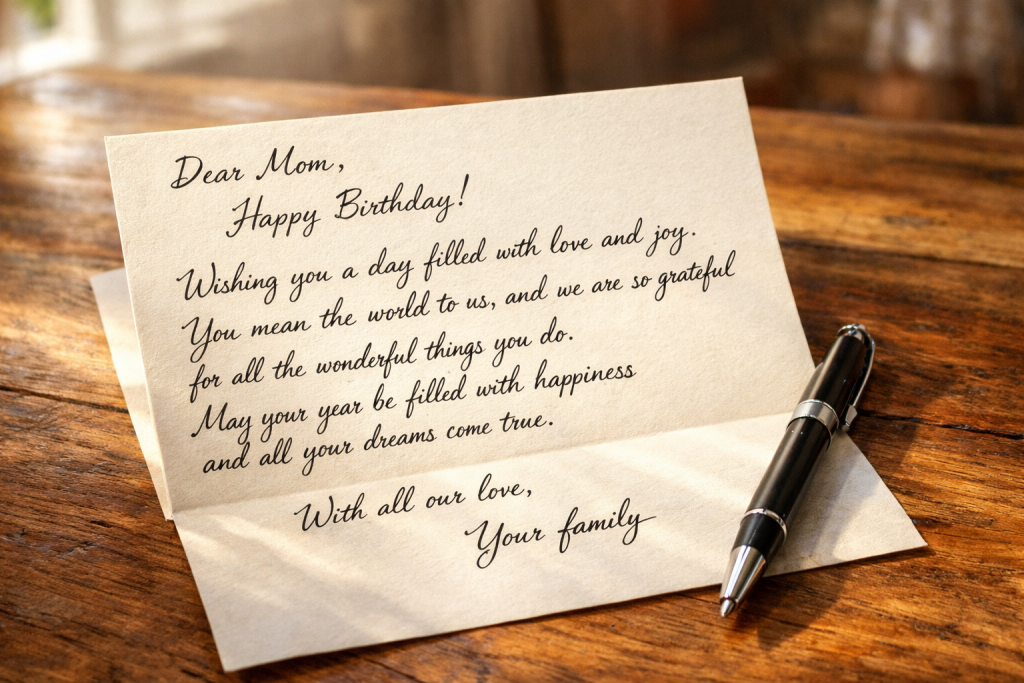 Dear Mom,
Happy Birthday!
Wishing you a day filled with love and joy.
You mean the world to us, and we are so grateful
for all the wonderful things you do.
May your year be filled with happiness
and all your dreams come true.
With all our love,
Your family